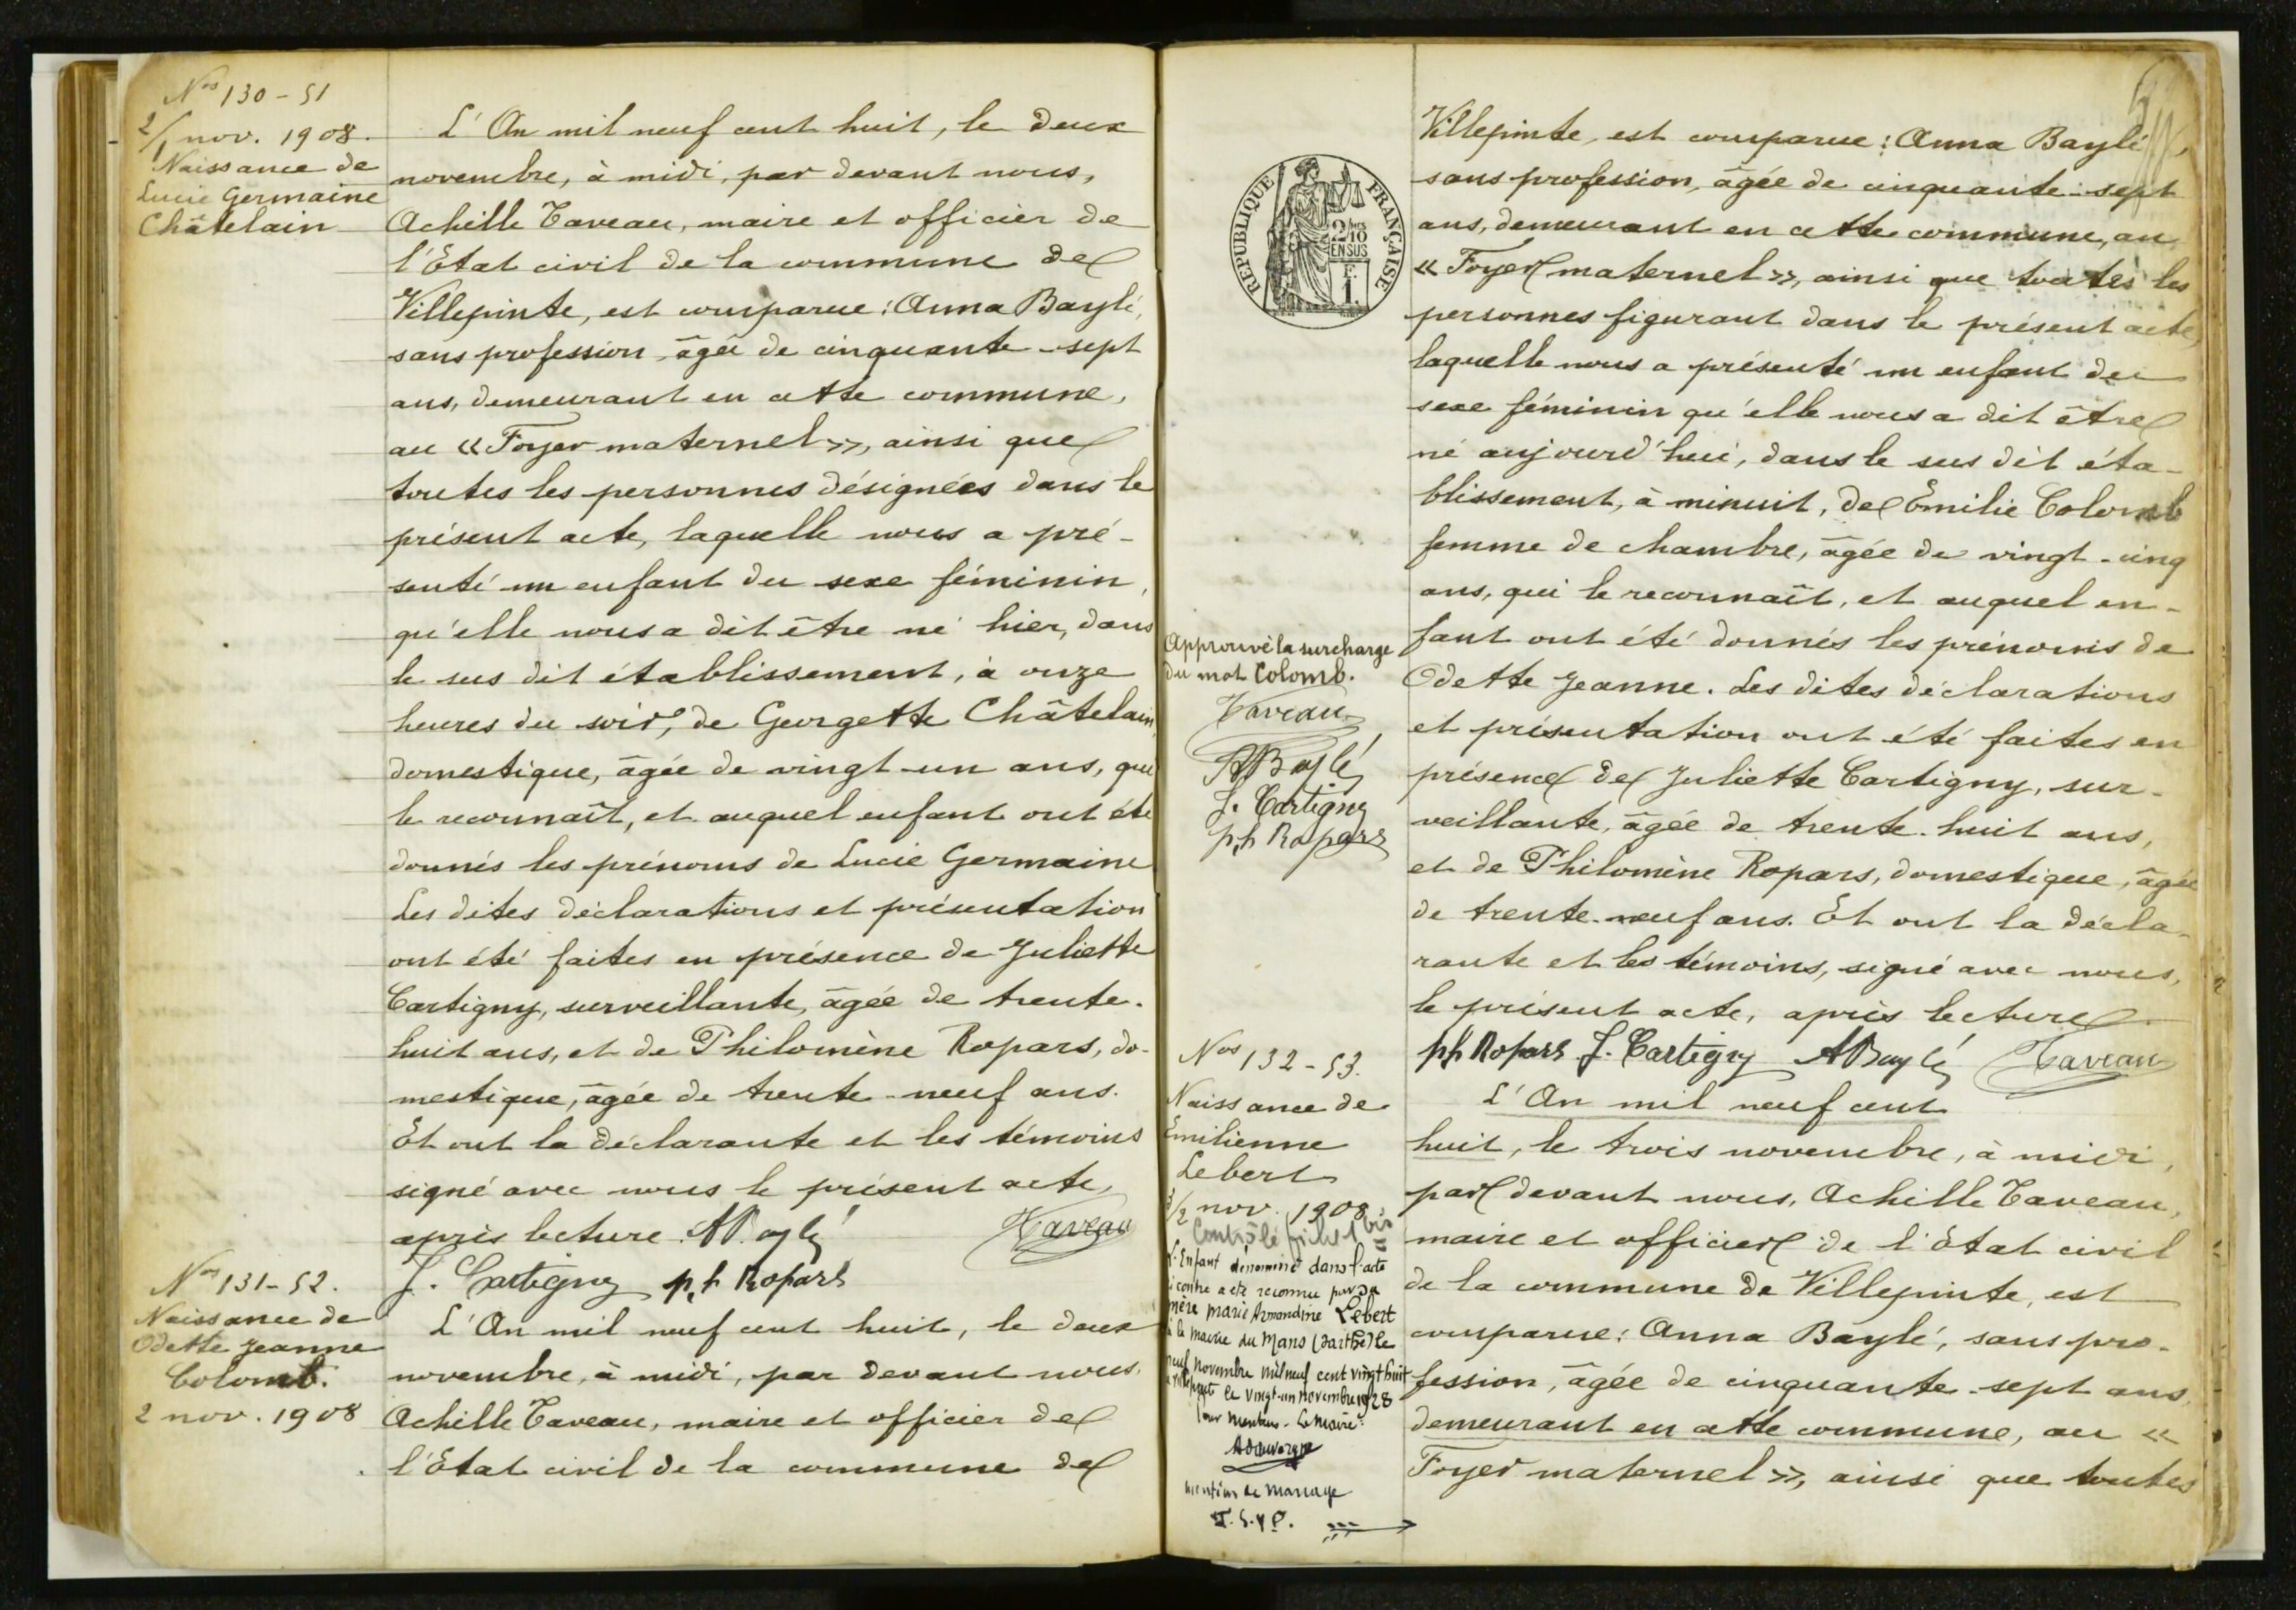 Nos 130-51
2/1 nov. 1908.
Naissance de
Lucie Germaine
Châtelain
L'An mil neuf cent huit, le deux
novembre, à midi, par devant nous,
Achille Taveau, maire et officier de
l'Etat civil de la commune de
Villepinte, est comparue : Anna Baylé,
sans profession, âgée de cinquante-sept
ans, demeurant en cette commune,
au «Foyer maternel», ainsi que
toutes les personnes désignées dans le
présent acte, laquelle nous a pré-
senté un enfant du sexe féminin,
qu'elle nous a dit être né hier, dans
le sus dit établissement, à onze
heures du soir, de Georgette Châtelain,
domestique, âgée de vingt-un ans, qui
le reconnaît, et auquel enfant ont été
donnés les prénoms de Lucie Germaine
Les dites déclarations et présentation
ont été faites en présence de Juliette
Cartigny, surveillante, âgée de trente-
huit ans, et de Philomène Ropars, do-
mestique, âgée de trente-neuf ans.
Et ont la déclarante et les témoins
signé avec nous le présent acte,
après lecture. A Baylé Taveau
J. Cartigny ph Ropars
Nos 131-52.
Naissance de
Odette Jeanne
Colomb.
2 nov. 1908
L'An mil neuf cent huit, le deux
novembre, à midi, par devant nous,
Achille Taveau, maire et officier de
l'Etat civil de la commune de
Villepinte, est comparue : Anna Baylé,
sans profession, âgée de cinquante-sept
ans, demeurant en cette commune, au
«Foyer maternel», ainsi que toutes les
personnes figurant dans le présent acte,
laquelle nous a présenté un enfant du
sexe féminin qu'elle nous a dit être
né aujourd'hui, dans le sus dit éta-
blissement, à minuit, de Emilie Colomb
femme de chambre, âgée de vingt-cinq
ans, qui le reconnaît, et auquel en-
fant ont été donnés les prénoms de
Odette Jeanne. Les dites déclarations
et présentation ont été faites en
présence de Juliette Cartigny, sur-
veillante, âgée de trente-huit ans,
et de Philomène Ropars, domestique, âgée
de trente-neuf ans. Et ont la décla-
rante et les témoins, signé avec nous,
le présent acte, après lecture
ph Ropars J. Cartigny A Baylé Taveau
REPUBLIQUE FRANÇAISE
2/10
EN SUS
F.
1.
Approuvé la surcharge
du mot Colomb.
Taveau
A Baylé
J. Cartigny
ph Ropars
Nos 132-53.
Naissance de
Emilienne
Lebert
3/2 nov. 1908
Contrôlé fichet bis
L'Enfant dénommé dans l'acte
ci contre a été reconnu par sa
mère marie Armandine Lebert
à la mairie du Mans (Sarthe) le
neuf novembre mil neuf cent vingt huit
le vingt-un novembre 1928
Le Maire :
mention de mariage
T.S.V.P.
L'An mil neuf cent
huit, le trois novembre, à midi,
par devant nous, Achille Taveau,
maire et officier de l'Etat civil
de la commune de Villepinte, est
comparue : Anna Baylé, sans pro-
fession, âgée de cinquante-sept ans,
demeurant en cette commune, au «
Foyer maternel», ainsi que toutes